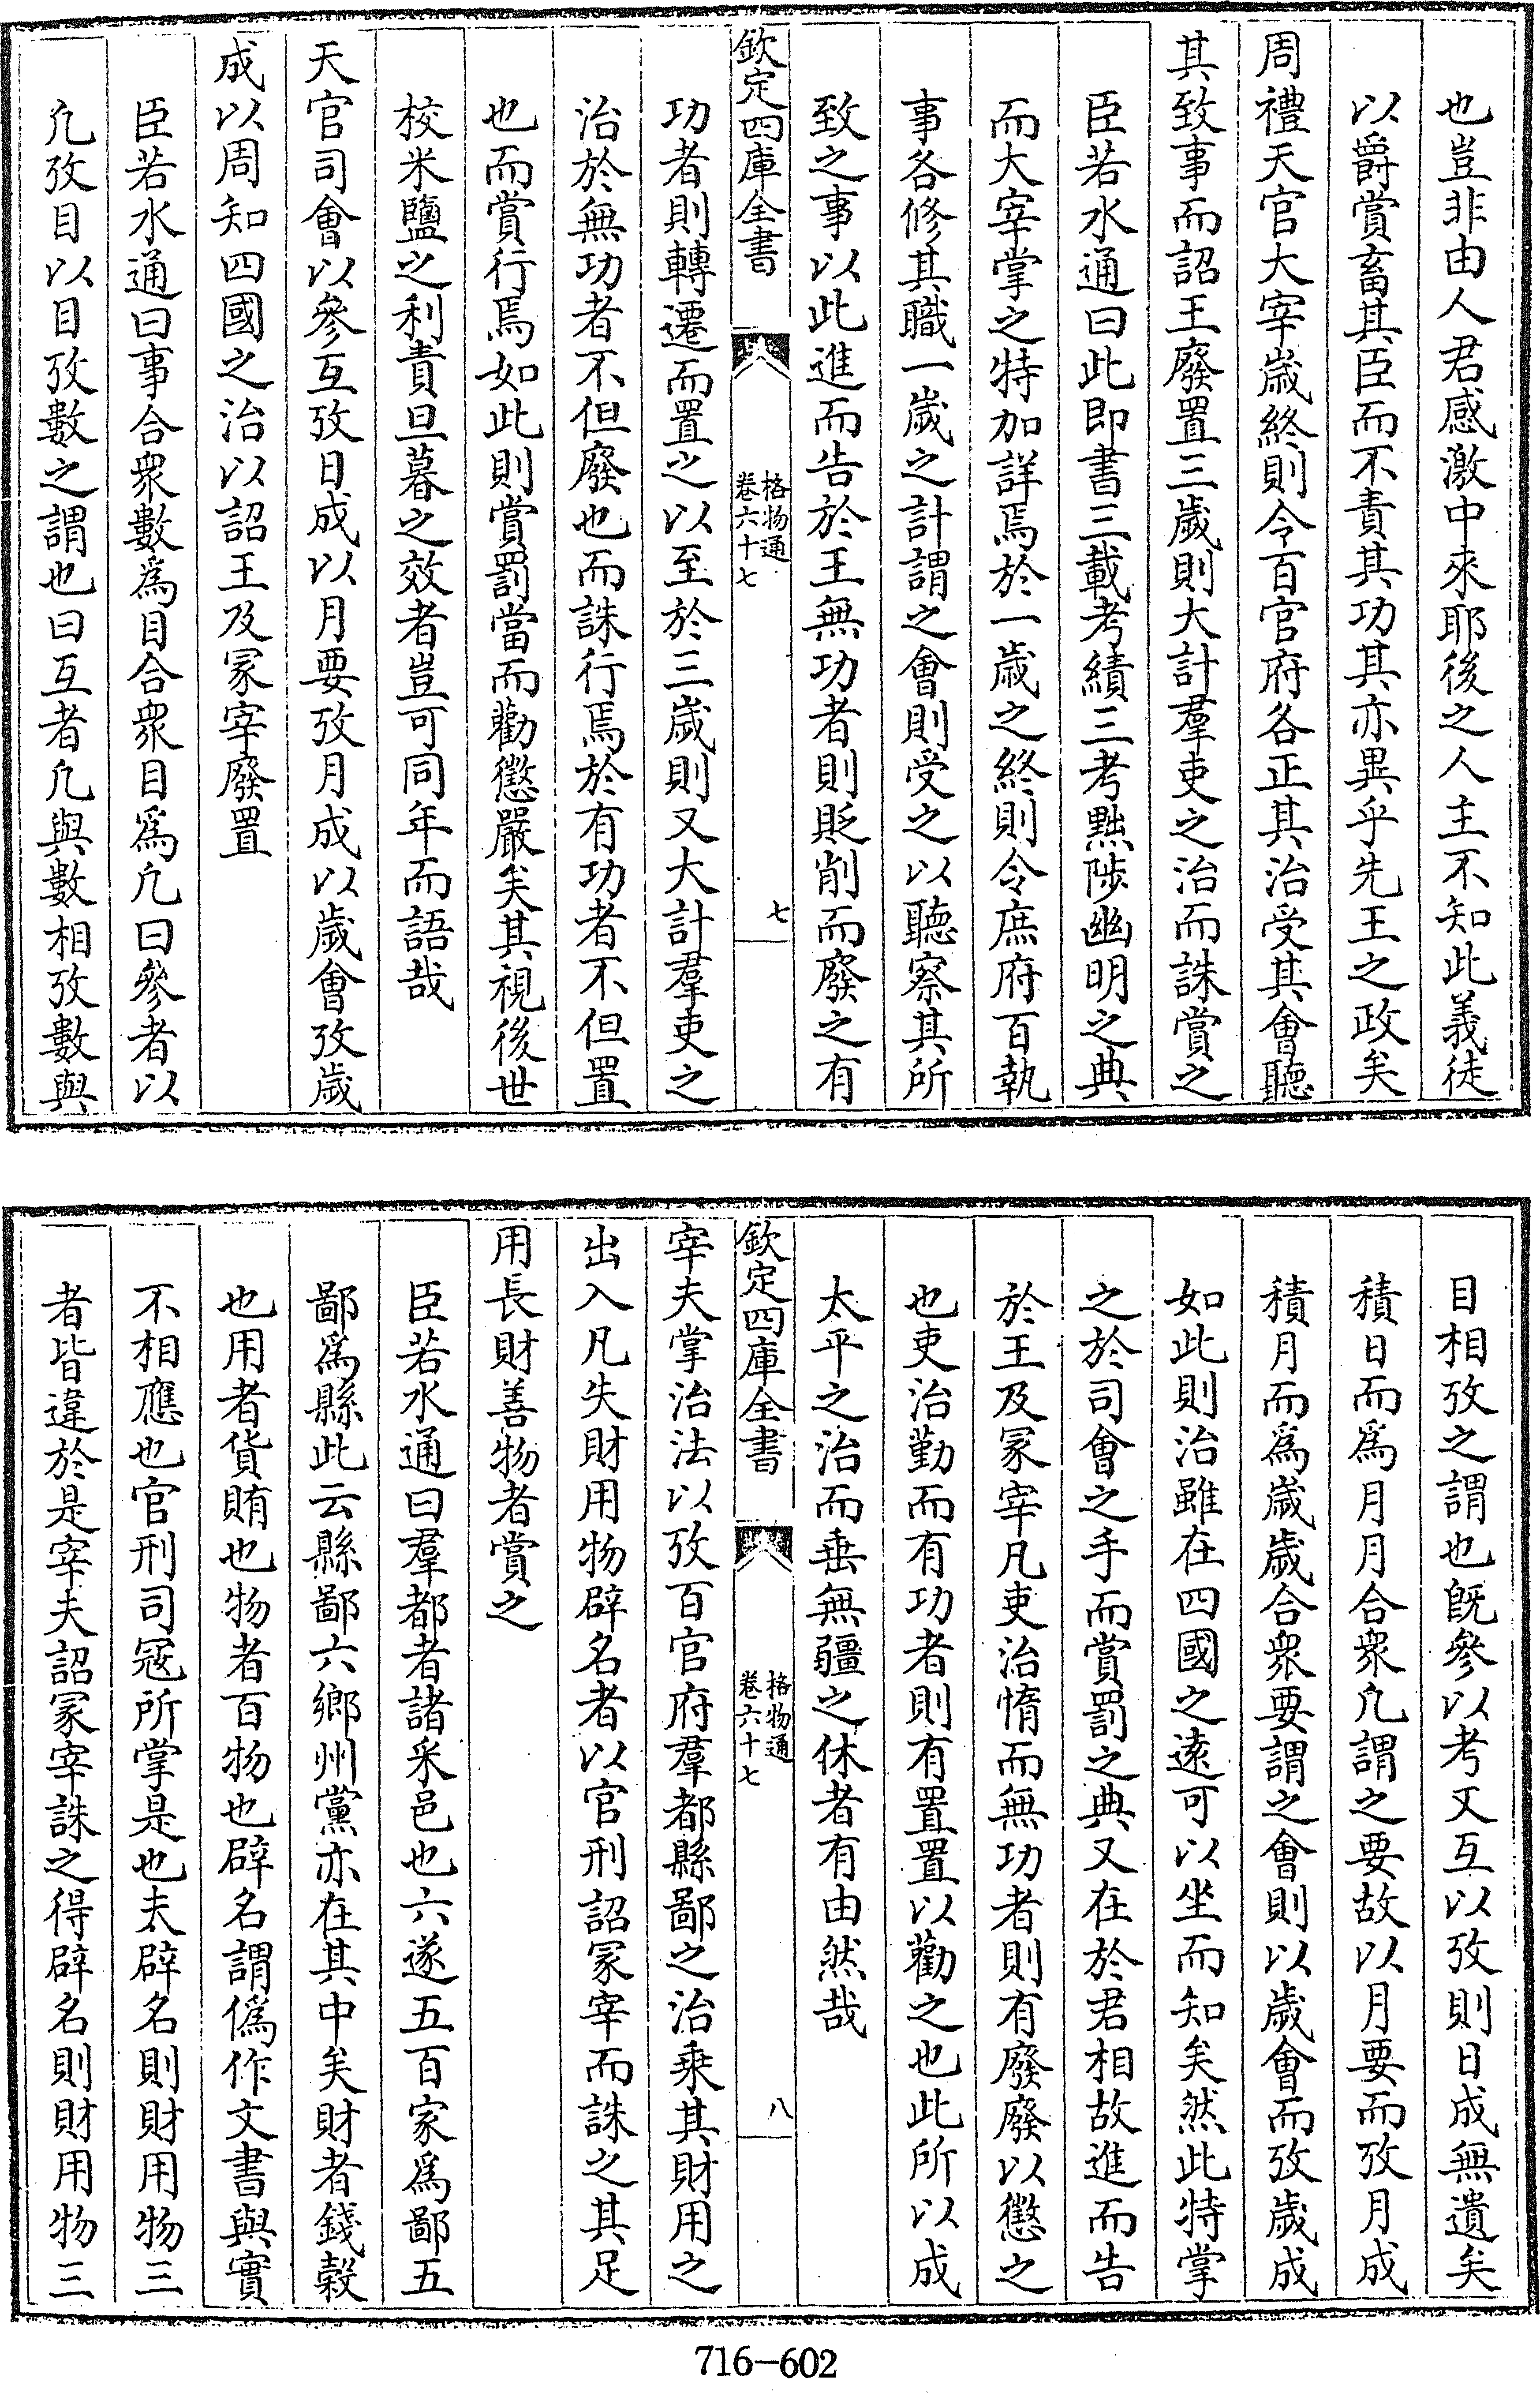 也豈非由人君感激中來耶後之人主不知此義徒
以爵賞畜其臣而不責其功其亦異乎先王之政矣
周禮天官大宰歲終則令百官府各正其治受其會聽
其致事而詔王廢置三歲則大計羣吏之治而誅賞之
臣若水通曰此即書三載考績三考黜陟幽明之典
而大宰掌之特加詳焉於一歲之終則令庶府百執
事各修其職一歲之計謂之會則受之以聽察其所
致之事以此進而告於王無功者則貶削而廢之有
欽定四庫全書
格物通
卷六十七
七
功者則轉遷而置之以至於三歲則又大計羣吏之
治於無功者不但廢也而誅行焉於有功者不但置
也而賞行焉如此則賞罰當而勸懲嚴矣其視後世
校米鹽之利責旦暮之效者豈可同年而語哉
天官司會以參互攷日成以月要攷月成以歲會攷歲
成以周知四國之治以詔王及冢宰廢置
臣若水通曰事合衆數爲目合衆目爲凢曰參者以
凢攷目以目攷數之謂也曰互者凢與數相攷數與
目相攷之謂也旣參以考又互以攷則日成無遺矣
積日而爲月月合衆凢謂之要故以月要而攷月成
積月而爲歲歲合衆要謂之會則以歲會而攷歲成
如此則治雖在四國之遠可以坐而知矣然此特掌
之於司會之手而賞罰之典又在於君相故進而告
於王及冢宰凡吏治惰而無功者則有廢廢以懲之
也吏治勤而有功者則有置置以勸之也此所以成
太平之治而垂無疆之休者有由然哉
欽定四庫全書
格物通
卷六十七
八
宰夫掌治法以攷百官府羣都縣鄙之治乘其財用之
出入凡失財用物辟名者以官刑詔冢宰而誅之其足
用長財善物者賞之
臣若水通曰羣都者諸采邑也六遂五百家爲鄙五
鄙爲縣此云縣鄙六鄉州黨亦在其中矣財者錢榖
也用者貨賄也物者百物也辟名謂僞作文書與實
不相應也官刑司冦所掌是也夫辟名則財用物三
者皆違於是宰夫詔冢宰誅之得辟名則財用物三
716-602